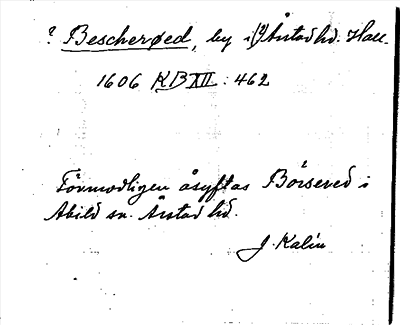 ? Bescherød, by i (?) Årstad hd. Hall.
1606 KB XII : 462
Förmodligen åsyftas Börsered i
Abild sn. Årstad hd.
J. Kalin